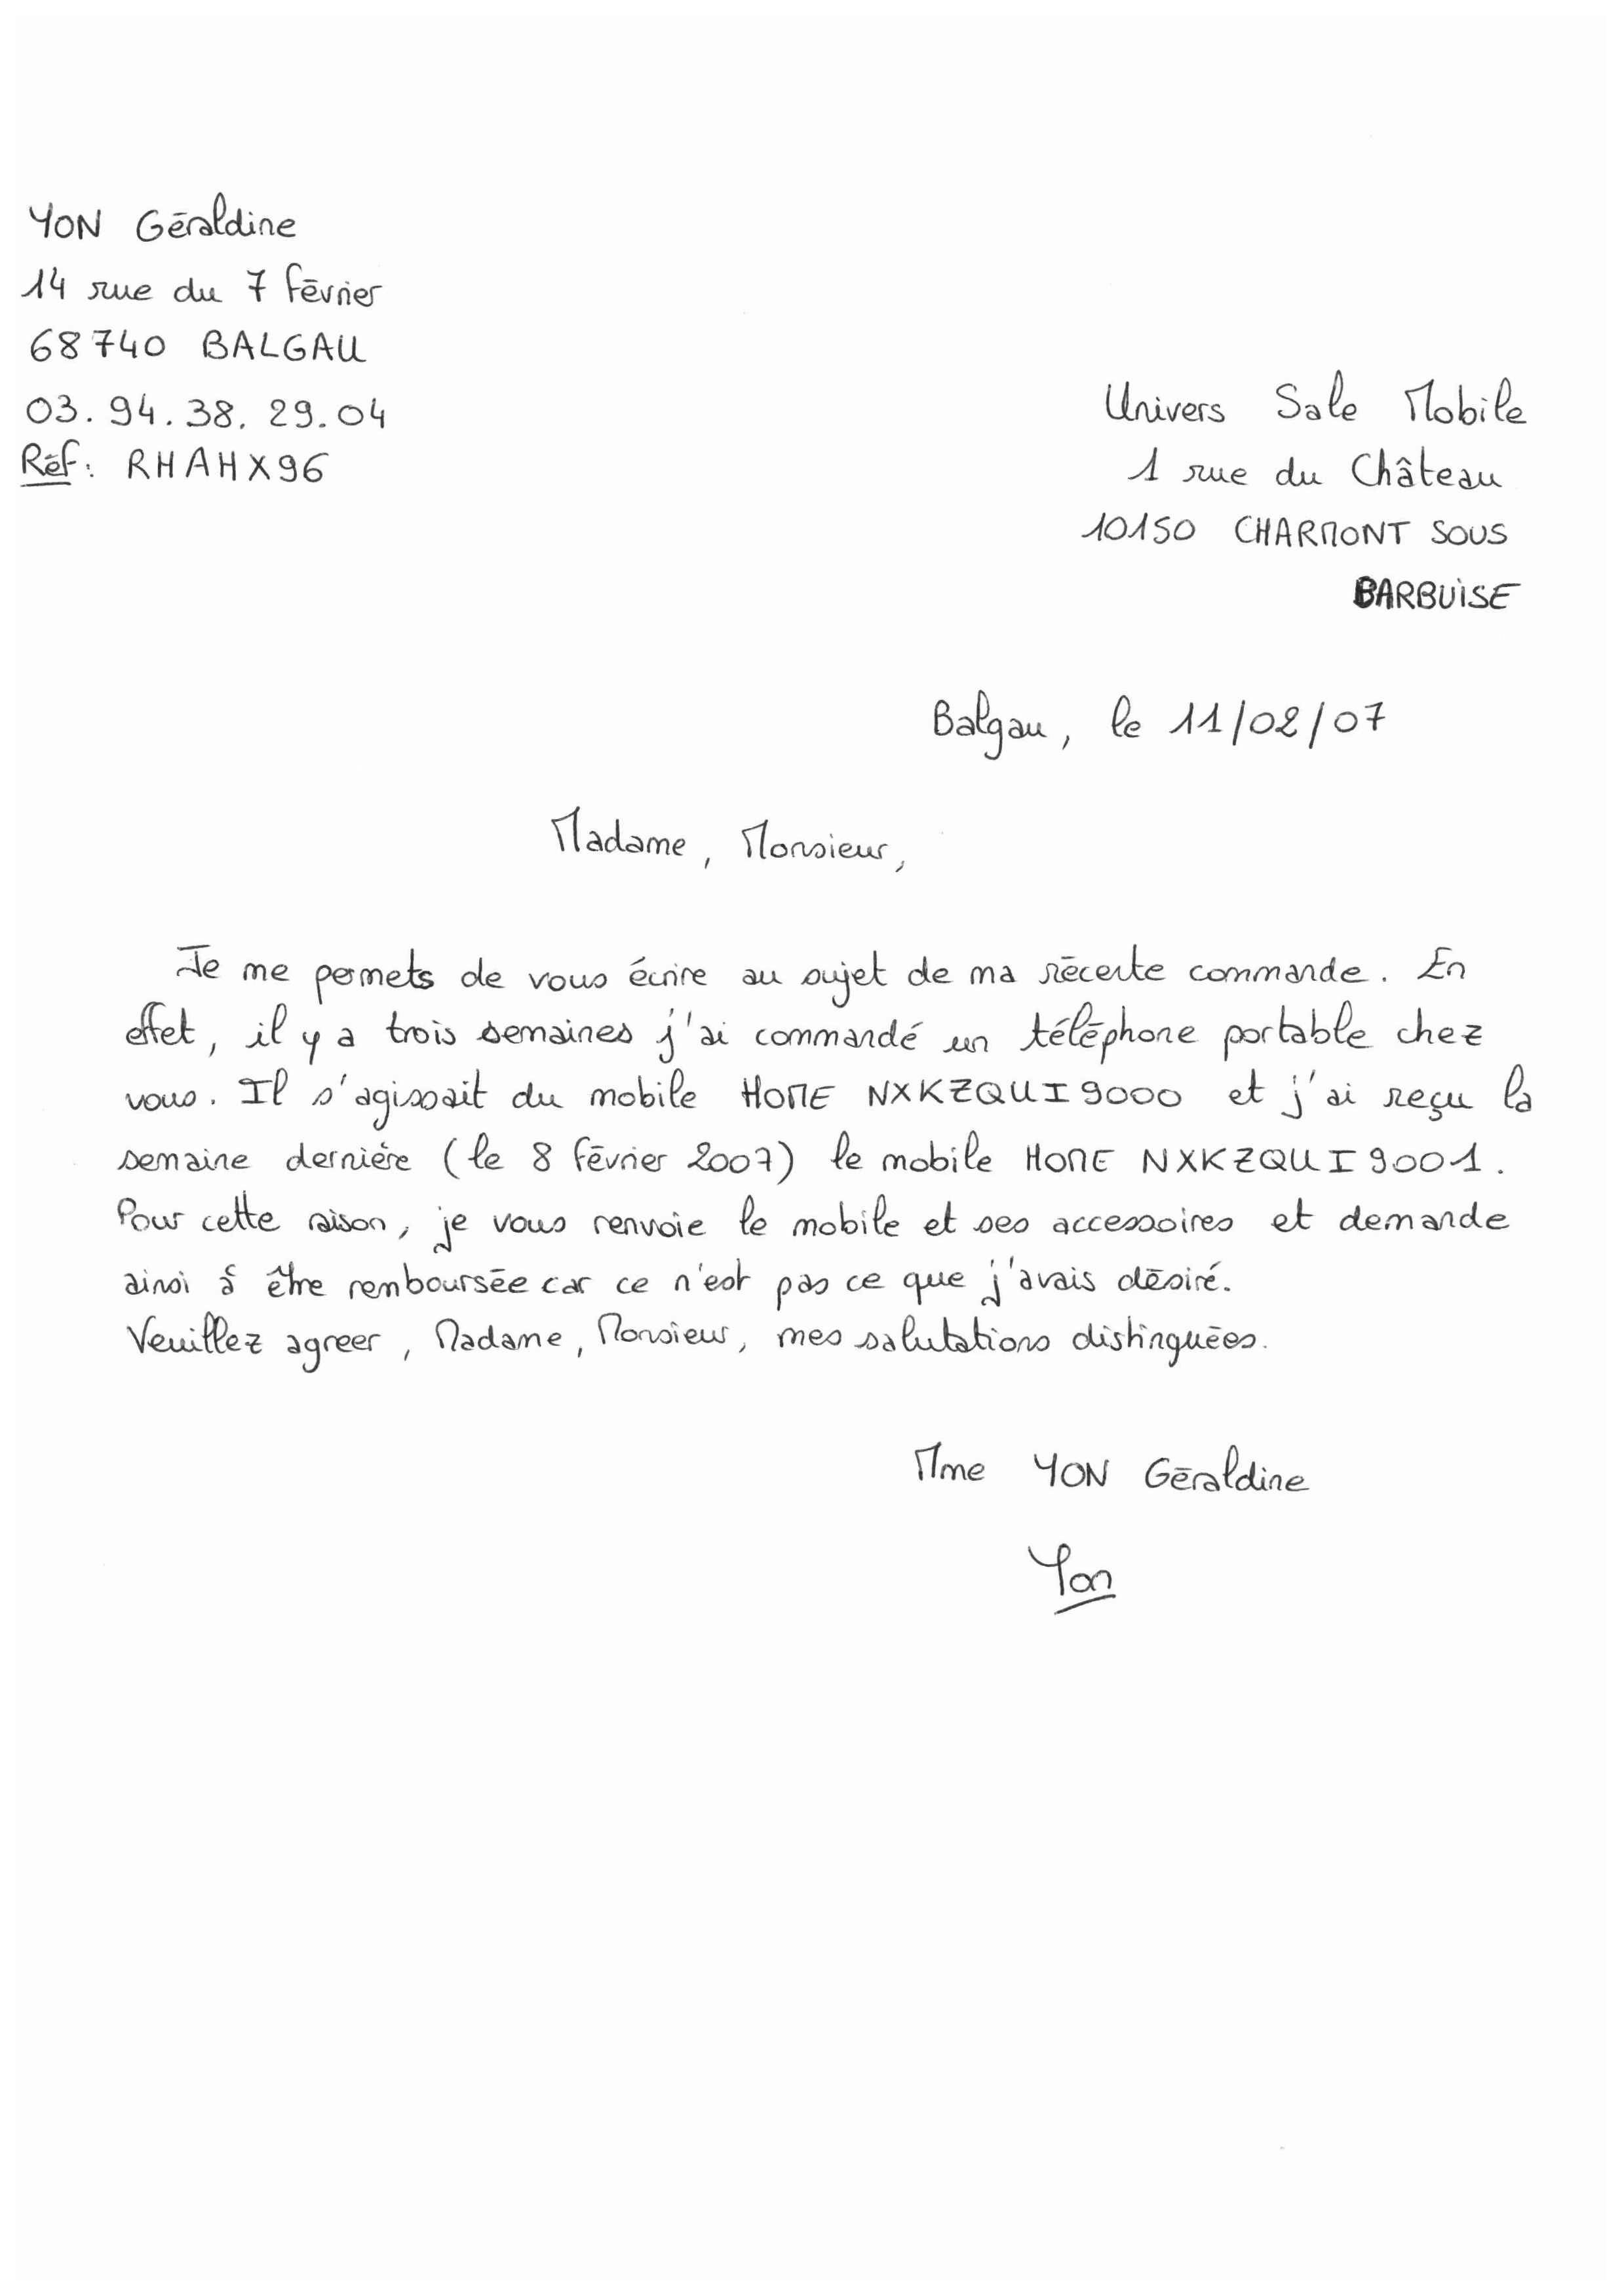 YON Géraldine
14 rue du 7 février
68740 BALGAU
03.94.38.29.04
Réf: RHAHX96
Univers Sale Mobile
1 rue du Château
10150 CHARMONT SOUS
BARBUISE
Balgau, le 11/02/07
Madame, Monsieur,
Je me permets de vous écrire au sujet de ma récente commande. En
effet, il y a trois semaines j'ai commandé un téléphone portable chez
vous. Il s'agissait du mobile HOME NXKZQUI9000 et j'ai reçu la
semaine dernière (le 8 février 2007) le mobile HOME NXKZQUI9001.
Pour cette raison, je vous renvoie le mobile et ses accessoires et demande
ainsi à être remboursée car ce n'est pas ce que j'avais désiré.
Veuillez agreer, Madame, Monsieur, mes salutations distinguées.
Mme YON Géraldine
Yon